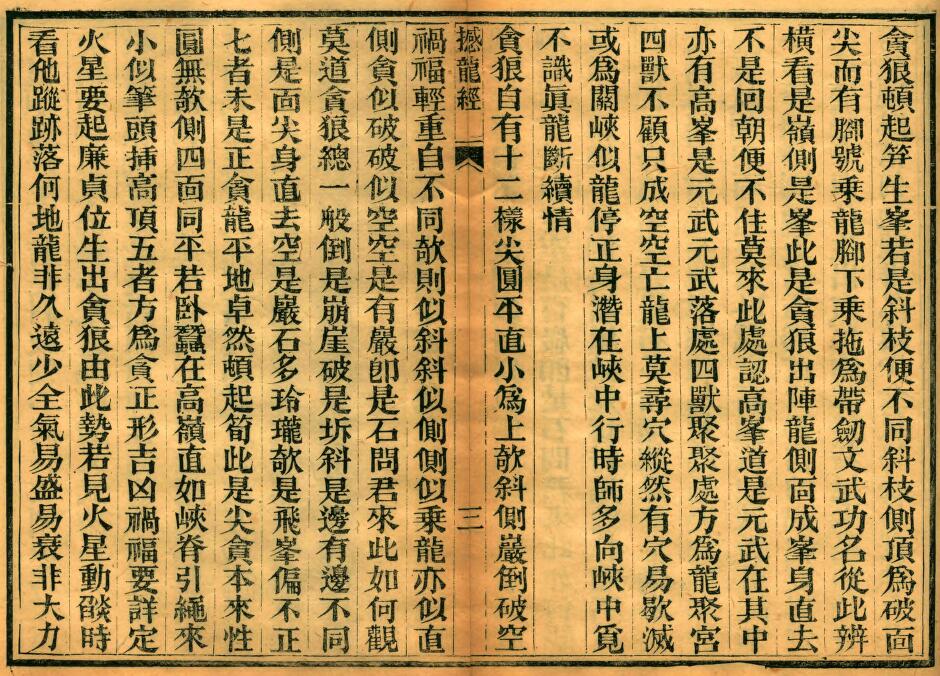 貪狼頓起笋生峯若是斜枝便不同斜枝側頂爲破面
尖而有腳號乗龍腳下乗拖爲帶劒文武功名從此辨
橫看是嶺側是峯此是貪狼出陣龍側面成峯身直去
不是回朝便不住莫來此處認高峯道是元武在其中
亦有高峯是元武元武落處四獸聚聚處方爲龍聚宮
四獸不顧只成空空亡龍上莫尋穴縱然有穴易歇滅
或爲關峽似龍停正身潛在峽中行時師多向峽中覓
不識眞龍斷續情
貪狼自有十二樣尖圓平直小爲上欹斜側巖倒破空
撼龍經
三
禍福輕重自不同欹則似斜斜似側側似乗龍亦似直
側貪似破破似空空是有巖卽是石問君來此如何觀
莫道貪狼總一般倒是崩崖破是坼斜是邊有邊不同
側是面尖身直去空是巖石多玲瓏欹是飛峯偏不正
七者未是正貪龍平地卓然頓起筍此是尖貪本來性
圓無欹側四面同平若卧蠶在高嶺直如峽脊引繩來
小似筆頭揷高頂五者方爲貪正形吉凶禍福要詳定
火星要起廉貞位生出貪狼由此勢若見火星動燄時
看他蹤跡落何地龍非久遠少全氣易盛易衰非大力